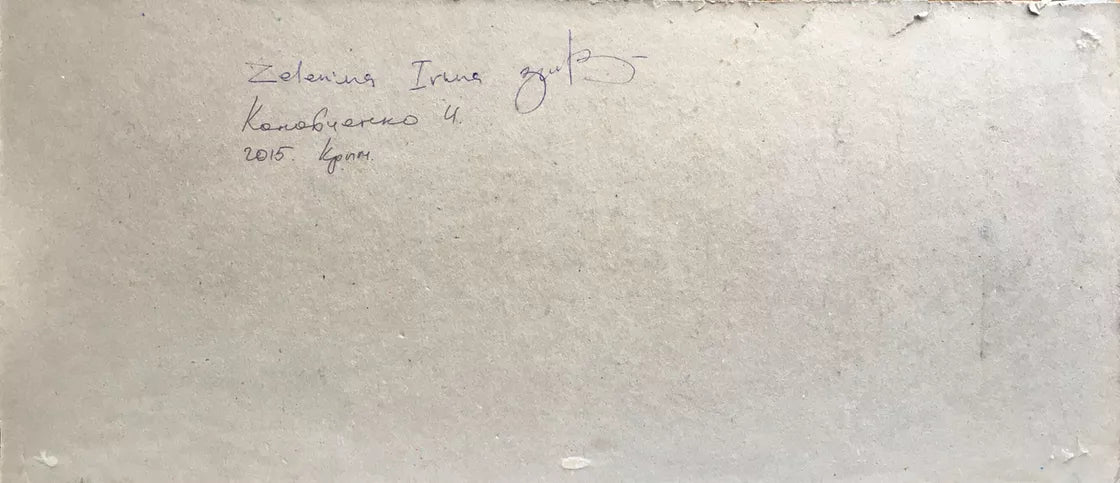 Zelenina Irina
Коновченко И.
2015. Крым.